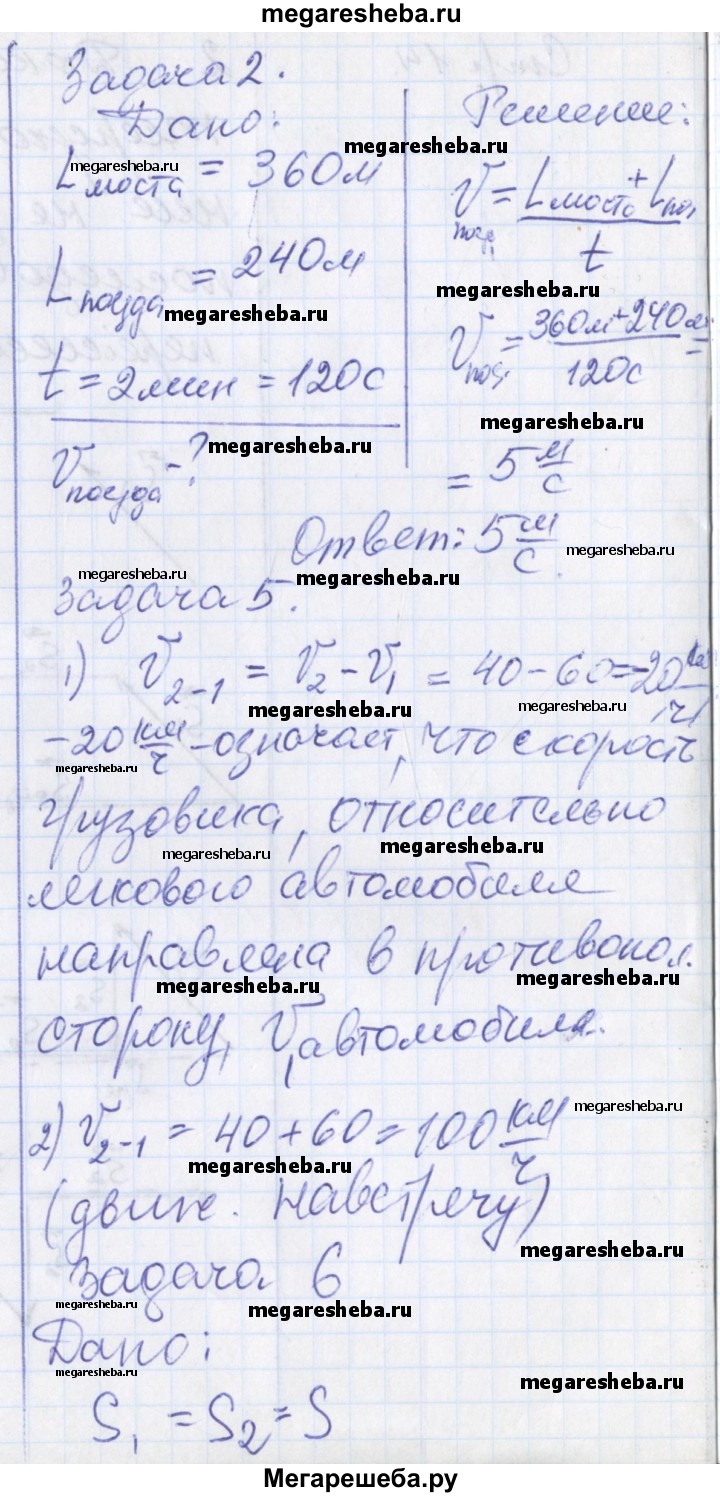 megaresheba.ru
Задача 2.
Дано:
megaresheba.ru
L моста = 360м
L поезда = 240м
megaresheba.ru
t = 2мин = 120с
V поезда - ?
megaresheba.ru
Решение:
V поез. = L моста + L по. / t
megaresheba.ru
V поез. = 360м + 240м / 120с =
megaresheba.ru
= 5 м/с
Ответ: 5 м/с
megaresheba.ru
megaresheba.ru
megaresheba.ru
Задача 5.
1) V₂₋₁ = V₂ - V₁ = 40 - 60 = -20 км/ч
megaresheba.ru
-20 км/ч - означает, что скорость
megaresheba.ru
грузовика, относительно
megaresheba.ru
megaresheba.ru
легкового автомобиля
направлена в противопол.
megaresheba.ru
megaresheba.ru
сторону, V₁ автомобиля.
2) V₂₋₁ = 40 + 60 = 100 км/ч
megaresheba.ru
megaresheba.ru
(движ. навстречу)
megaresheba.ru
Задача 6
megaresheba.ru
megaresheba.ru
Дано:
megaresheba.ru
S₁ = S₂ = S
Мегарешеба.ру